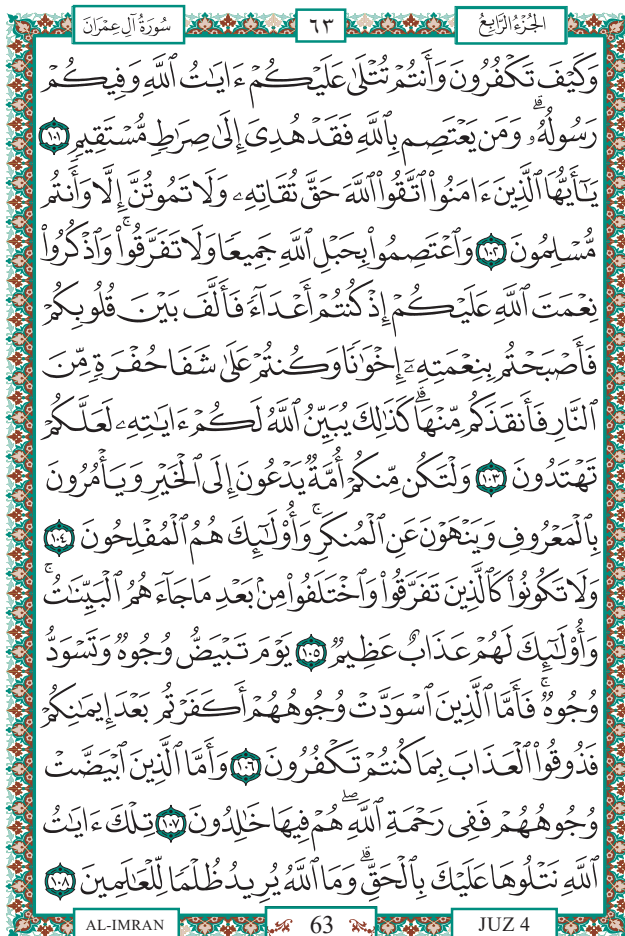 الجُزْءُ الرَّابِعُ ٦٣ سُورَةُ آلِ عِمْرَانَ
وَكَيْفَ تَكْفُرُونَ وَأَنتُمْ تُتْلَىٰ عَلَيْكُمْ ءَايَٰتُ ٱللَّهِ وَفِيكُمْ
رَسُولُهُۥۗ وَمَن يَعْتَصِم بِٱللَّهِ فَقَدْ هُدِىَ إِلَىٰ صِرَٰطٍ مُّسْتَقِيمٍ ١٠١
يَٰٓأَيُّهَا ٱلَّذِينَ ءَامَنُوا۟ ٱتَّقُوا۟ ٱللَّهَ حَقَّ تُقَاتِهِۦ وَلَا تَمُوتُنَّ إِلَّا وَأَنتُم
مُّسْلِمُونَ ١٠٢ وَٱعْتَصِمُوا۟ بِحَبْلِ ٱللَّهِ جَمِيعًا وَلَا تَفَرَّقُوا۟ۚ وَٱذْكُرُوا۟
نِعْمَتَ ٱللَّهِ عَلَيْكُمْ إِذْ كُنتُمْ أَعْدَآءً فَأَلَّفَ بَيْنَ قُلُوبِكُمْ
فَأَصْبَحْتُم بِنِعْمَتِهِۦٓ إِخْوَٰنًا وَكُنتُمْ عَلَىٰ شَفَا حُفْرَةٍ مِّنَ
ٱلنَّارِ فَأَنقَذَكُم مِّنْهَاۗ كَذَٰلِكَ يُبَيِّنُ ٱللَّهُ لَكُمْ ءَايَٰتِهِۦ لَعَلَّكُمْ
تَهْتَدُونَ ١٠٣ وَلْتَكُن مِّنكُمْ أُمَّةٌ يَدْعُونَ إِلَى ٱلْخَيْرِ وَيَأْمُرُونَ
بِٱلْمَعْرُوفِ وَيَنْهَوْنَ عَنِ ٱلْمُنكَرِۚ وَأُو۟لَٰٓئِكَ هُمُ ٱلْمُفْلِحُونَ ١٠٤
وَلَا تَكُونُوا۟ كَٱلَّذِينَ تَفَرَّقُوا۟ وَٱخْتَلَفُوا۟ مِنۢ بَعْدِ مَا جَآءَهُمُ ٱلْبَيِّنَٰتُۚ
وَأُو۟لَٰٓئِكَ لَهُمْ عَذَابٌ عَظِيمٌ ١٠٥ يَوْمَ تَبْيَضُّ وُجُوهٌ وَتَسْوَدُّ
وُجُوهٌۚ فَأَمَّا ٱلَّذِينَ ٱسْوَدَّتْ وُجُوهُهُمْ أَكَفَرْتُم بَعْدَ إِيمَٰنِكُمْ
فَذُوقُوا۟ ٱلْعَذَابَ بِمَا كُنتُمْ تَكْفُرُونَ ١٠٦ وَأَمَّا ٱلَّذِينَ ٱبْيَضَّتْ
وُجُوهُهُمْ فَفِى رَحْمَةِ ٱللَّهِۖ هُمْ فِيهَا خَٰلِدُونَ ١٠٧ تِلْكَ ءَايَٰتُ
ٱللَّهِ نَتْلُوهَا عَلَيْكَ بِٱلْحَقِّۗ وَمَا ٱللَّهُ يُرِيدُ ظُلْمًا لِّلْعَٰلَمِينَ ١٠٨
AL-IMRAN 63 JUZ 4